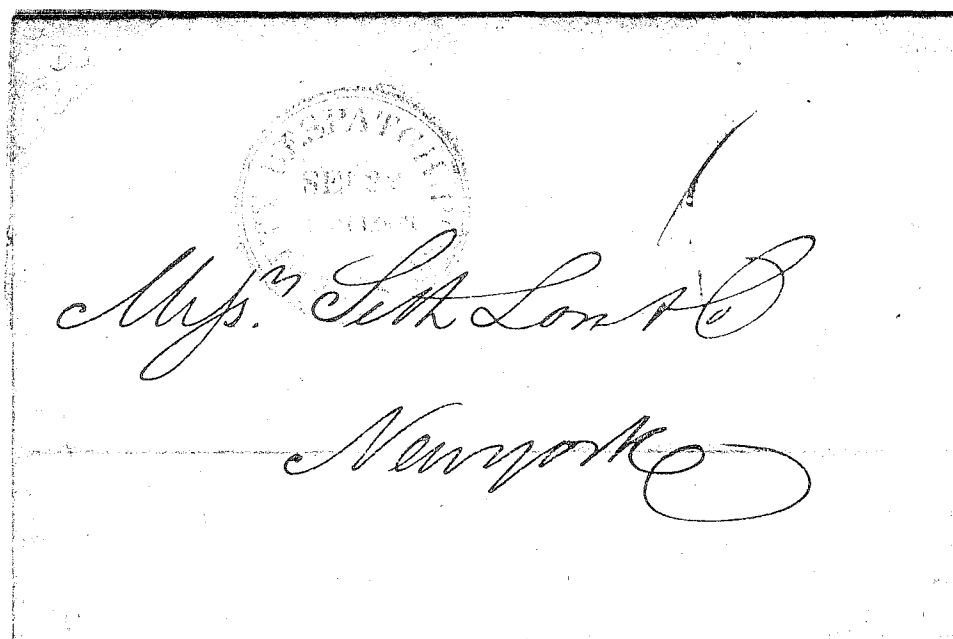 DESPATCH
SEP
Mess.rs Seth Low & Co
Newyork